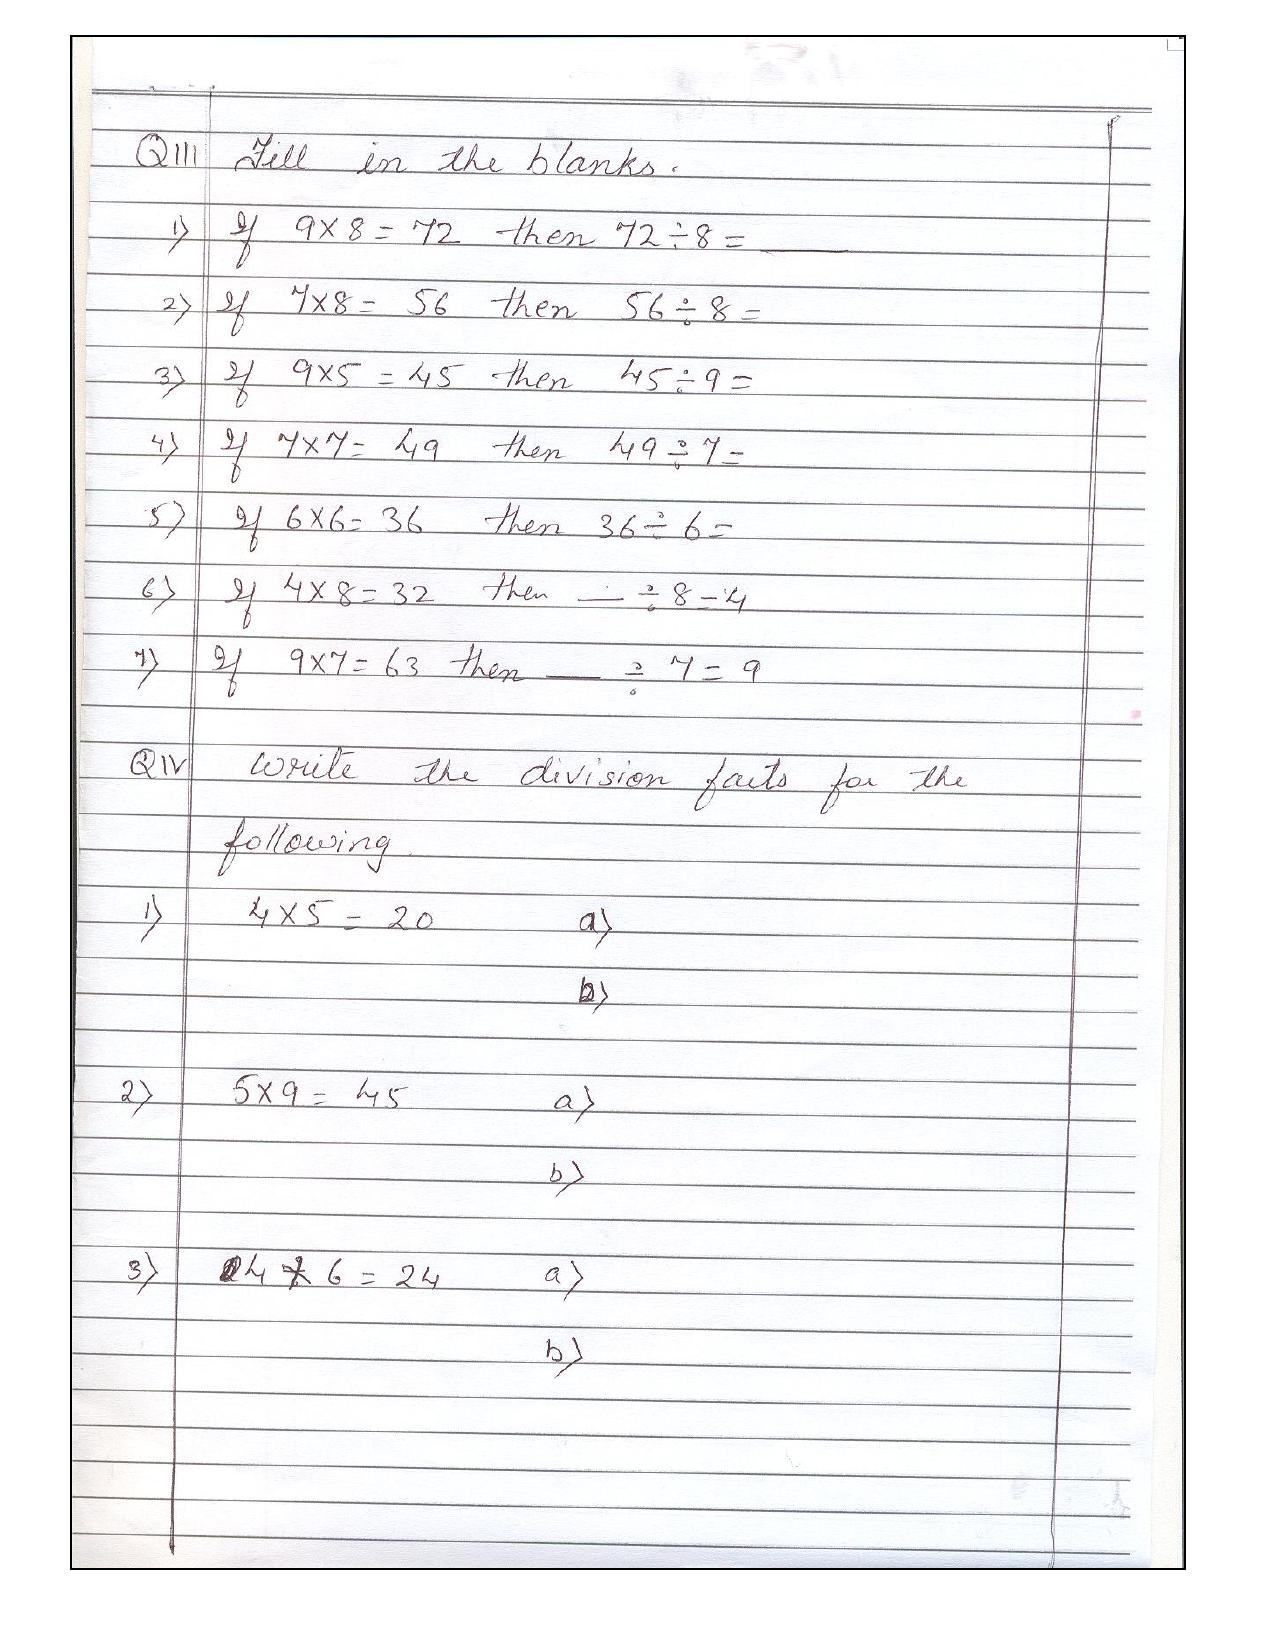 QIII Fill in the blanks.
1) If 9×8 = 72 then 72÷8 = ____
2) If 7×8 = 56 then 56÷8 =
3) If 9×5 = 45 then 45÷9 =
4) If 7×7 = 49 then 49÷7 =
5) If 6×6 = 36 then 36÷6 =
6) If 4×8 = 32 then __ ÷8 = 4
7) If 9×7 = 63 then __ ÷ 7 = 9
QIV Write the division facts for the
following
1) 4×5 = 20 a)
b)
2) 5×9 = 45 a)
b)
3) 4 × 6 = 24 a)
b)